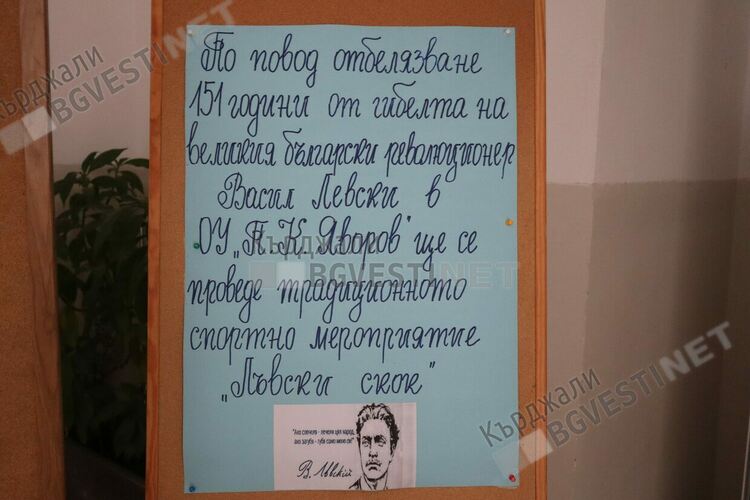 По повод отбелязване
151 години от гибелта на
великия български революционер
Васил Левски в
ОУ „П. К. Яворов" ще се
проведе традиционното
спортно мероприятие
„Лъвски скок"
"Ако спечеля - печеля цял народ,
ако загубя - губя само мене си!"
В. Лѫвскій
Кърджали
BGVESTINET
Кърджали
BGVESTINET
Кърджали
BGVESTINET